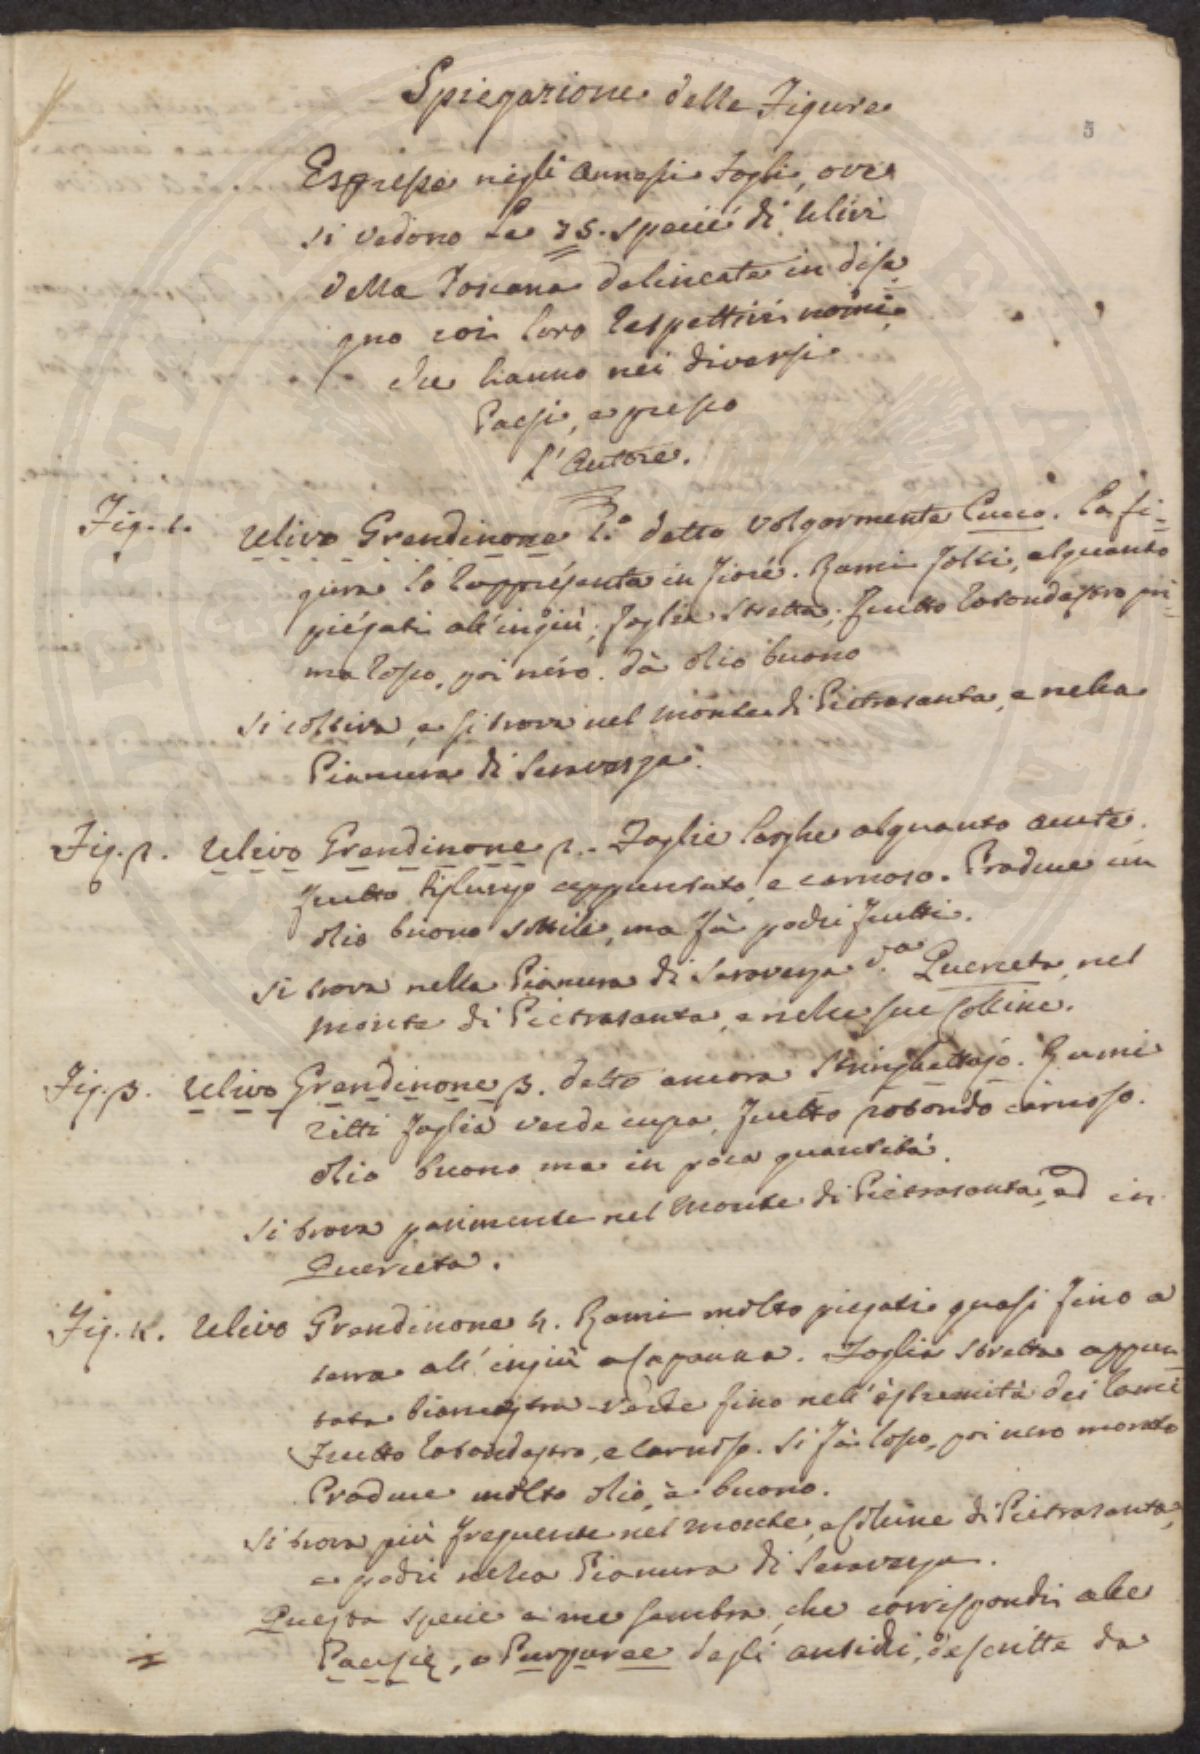 Spiegazione delle Figure
5
Espresse negli annessi Fogli, ove
si vedono Le 75. specie di Ulivi
della Toscana delineate in dise
gno coi loro respettivi nomi
che hanno nei diversi
Paesi, e presso
l'Autore.
Fig. 1. Ulivo Grendinone 1.º detto volgarmente Cucco. La fi-
gura lo rappresenta in fiore. Rami folti, alquanto
piegati all'ingiù; foglia stretta; frutto rotondastro pri-
ma rosso, poi nero. dà olio buono
Si coltiva, e si trova nel Monte di Pietrasanta, e nella
Pianura di Seravezza.
Fig. 2. Ulivo Grendinone 2. Foglie larghe alquanto acute.
frutto bislungo appuntato, e carnoso. Produce un
olio buono sottile, ma fà pochi frutti.
Si trova nella Pianura di Saravezza d.ª Querceta, nel
Monte di Pietrasanta, e nelle sue Colline.
Fig. 3. Ulivo Grendinone 3. detto ancora Stringhettajo. Rami
ritti foglia verde cupa, frutto rotondo carnoso.
olio buono ma in poca quantità.
Si trova parimente nel Monte di Pietrasanta, ed in
Querceta.
Fig. 4. Ulivo Grendinone 4. Rami molto piegati quasi fino a
terra all'ingiù a Capanna. Foglia stretta appun-
tata biancastra-verde fino nell'estremità dei rami
Frutto rotondastro, e carnoso. Si fà rosso, poi nero morato
Produce molto olio, e buono.
Si trova più frequente nel Monte, e Colline di Pietrasanta,
e pochi nella Pianura di Seravezza.
Questa specie a me sembra, che corrispondi alle
Pausie, o Purpuree degli antichi, descritte da